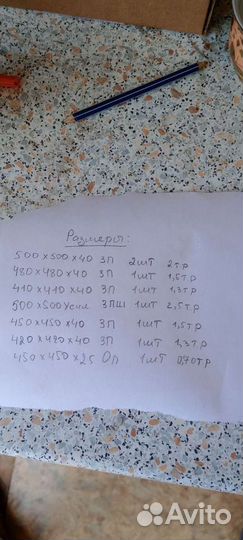 Размеры:
500 х 500 х 40 ЗП 2шт 2 т.р
480 х 480 х 40 ЗП 1шт 1,5 т.р
410 х 410 х 40 ЗП 1шт 1,3 т.р
500 х 500 Усил ЗПШ 1шт 2,5 т.р
450 х 450 х 40 ЗП 1шт 1,5 т.р
420 х 420 х 40 ЗП 1шт 1,3 т.р
450 х 450 х 25 ОП 1шт 0,70 т.р
Avito